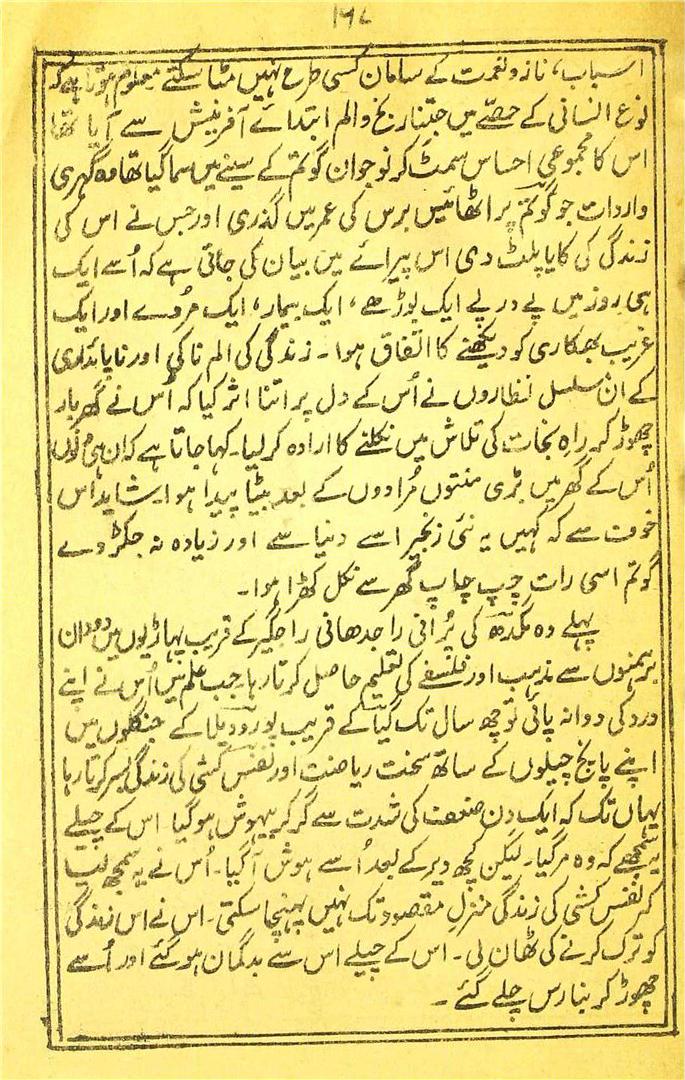 ۱۶۷
اسباب، ناز و نعمت کے سامان کسی طرح نہیں مٹا سکتے معلوم ہوتا ہے کہ
نوع انسانی کے حصّے میں جتنا رنج والم ابتدائے آفرنیش سے آیا تھا
اس کا مجموعی احساس سمٹ کر نوجوان گوتم کے سینے میں سما گیا تھا وہ گہری
واردات جو گوتم پر اٹھائیس برس کی عمر میں گذری اور جس نے اس کی
زندگی کی کایا پلٹ دی اس پیرائے میں بیان کی جاتی ہے کہ اُسے ایک
ہی روز میں پے در پے ایک بوڑھے، ایک بیمار، ایک مُردے اور ایک
غریب بھکاری کو دیکھنے کا اتفاق ہوا۔ زندگی کی الم ناکی اور ناپائداری
کے ان مسلسل نظاروں نے اُس کے دل پر اتنا اثر کیا کہ اُس نے گھر بار
چھوڑ کر راہِ نجات کی تلاش میں نکلنے کا ارادہ کر لیا۔ کہا جاتا ہے کہ ان ہی دنوں
اُس کے گھر میں بڑی منتوں مُرادوں کے بعد بیٹا پیدا ہوا۔ شاید اس
خوف سے کہ کہیں یہ نئی زنجیر اسے دنیا سے اور زیادہ نہ جکڑ دے
گوتم اسی رات چپ چاپ گھر سے نکل کھڑا ہوا۔
پہلے وہ مگدھ کی پُرانی راجدھانی راجگیر کے قریب پہاڑیوں میں دودان
برہمنوں سے مذہب اور فلسفے کی تعلیم حاصل کرتا رہا۔ جب علم میں اُس نے اپنے
درد کی دوا نہ پائی تو چھ سال تک گیا کے قریب یوروویلا کے جنگلوں میں
اپنے پانچ چیلوں کے ساتھ سخت ریاضت اور نفس کشی کی زندگی بسر کرتا رہا
یہاں تک کہ ایک دن ضعف کی شدت سے گر کر بیہوش ہو گیا اس کے چیلے
یہ سمجھے کہ وہ مر گیا۔ لیکن کچھ دیر کے بعد اُسے ہوش آ گیا۔ اُس نے یہ سمجھ لیا
کہ نفس کشی کی زندگی منزلِ مقصود تک نہیں پہنچا سکتی۔ اس نے اس زندگی
کو ترک کرنے کی ٹھان لی۔ اس کے چیلے اس سے بدگمان ہو گئے اور اُسے
چھوڑ کر بنارس چلے گئے ۔